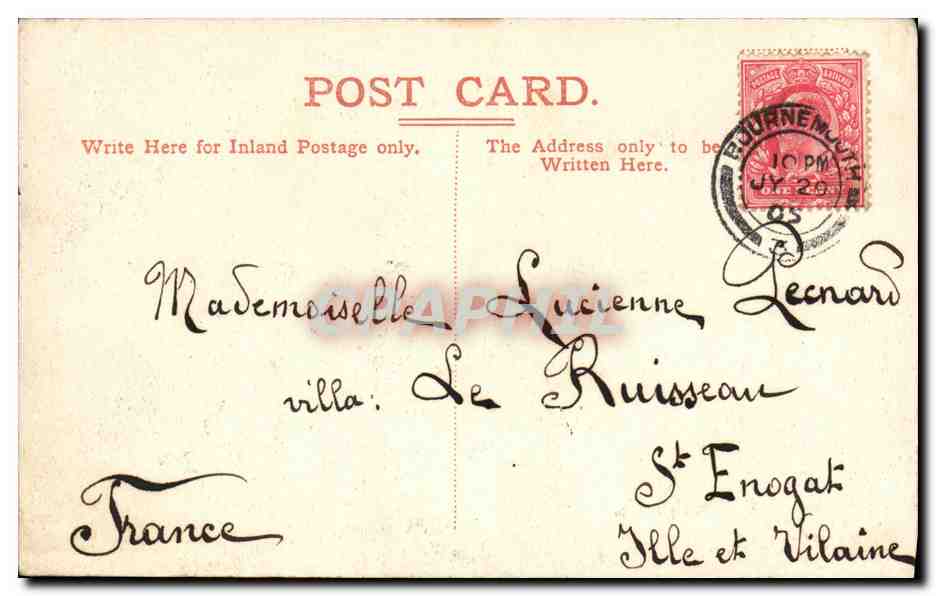 POST CARD.
Write Here for Inland Postage only.
The Address only to be
Written Here.
POSTAGE REVENUE
ONE PENNY
BOURNEMOUTH
10 PM
JY 29
05
Mademoiselle Lucienne Leonard
villa: Le Ruisseau
St Enogat
Ille et Vilaine
France